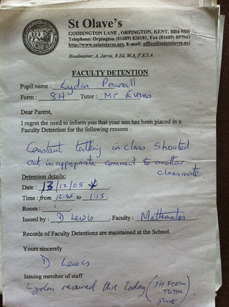 St Olave's
GODDINGTON LANE, ORPINGTON, KENT. BR6 9SH
Telephone: Orpington (01689) 820101. Fax: (01689) 897943
http://www.saintolaves.net, E-mail: office@saintolaves.net
Headmaster: A. Jarvis, B.Ed, M.A., F.R.S.A.
FACULTY DETENTION
Pupil name:
Form: 8H Tutor: Mr Evans
Dear Parent,
I regret the need to inform you that your son has been placed in a
Faculty Detention for the following reasons:
Constant talking in class. Shouted
out inappropriate comment to another
classmate
Detention details:
Date: 13/12/05
Time: from 12:45 to 1:15
Room:
Issued by: D Lewis Faculty: Mathematics
Records of Faculty Detentions are maintained at the School.
Yours sincerely
D Lewis
Issuing member of staff
received this today